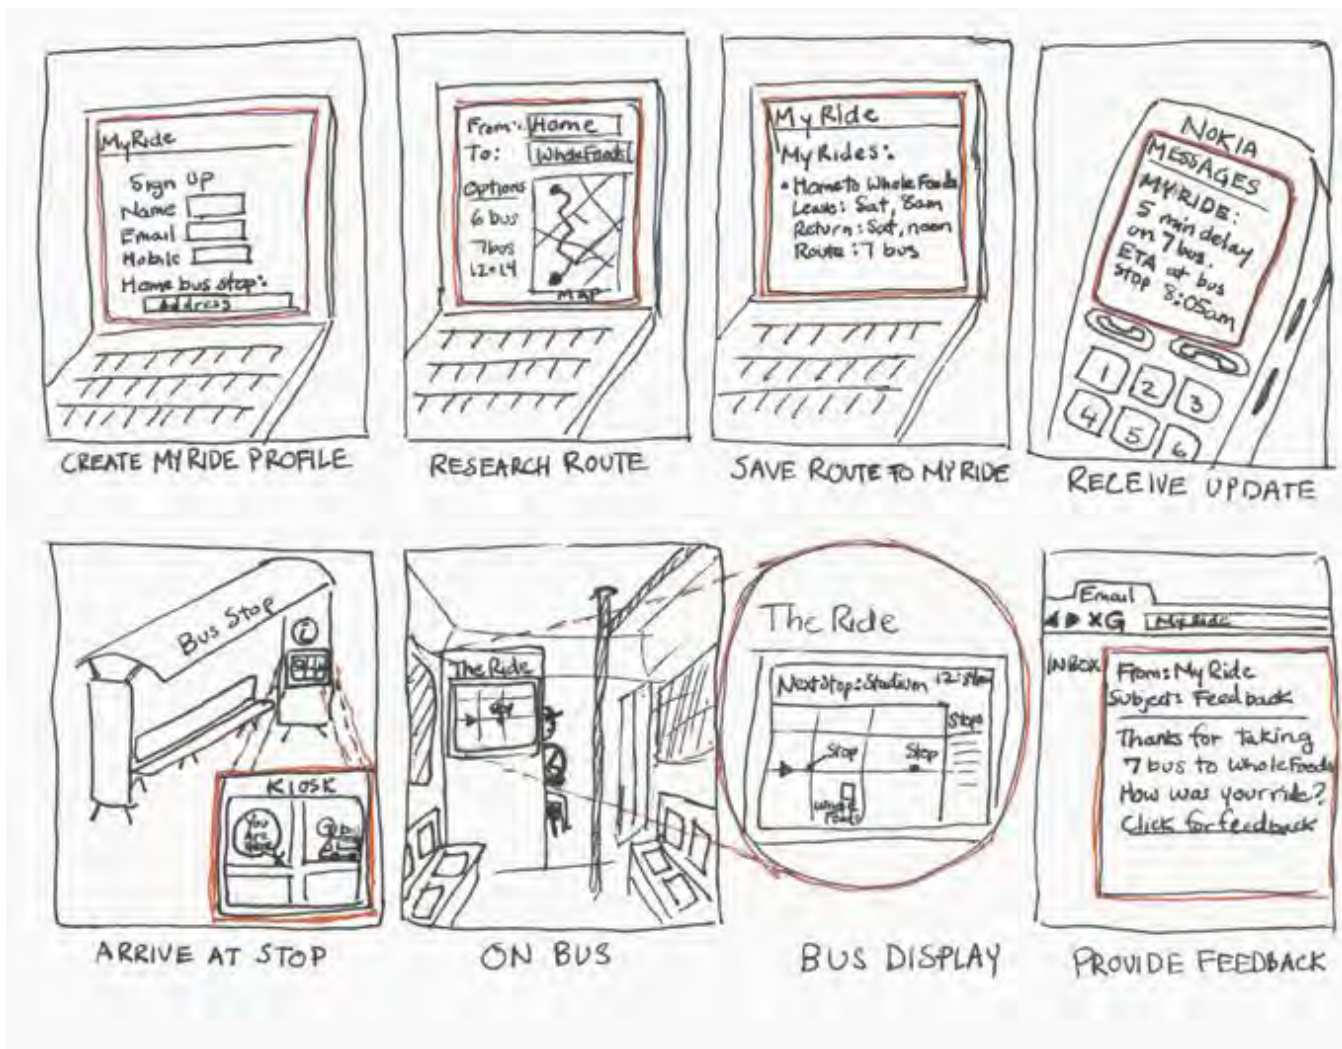 MyRide
Sign Up
Name
Email
Mobile
Home bus stop:
Address
CREATE MYRIDE PROFILE
From: Home
To: Whole Foods
Options
6 bus
7 bus
12:14
MAP
RESEARCH ROUTE
My Ride
My Rides:
• Home to Whole Foods
Leave: Sat, 8am
Return: Sat, noon
Route: 7 bus
SAVE ROUTE TO MYRIDE
NOKIA
MESSAGES
MYRIDE:
5 min delay
on 7 bus.
ETA at bus
stop 8:05am
1 2 3
4 5 6
RECEIVE UPDATE
Bus Stop
i
KIOSK
You
Are
Here
ARRIVE AT STOP
The Ride
ON BUS
The Ride
Next Stop: Stadium
Stops
Stop
Stop
Whole
Foods
BUS DISPLAY
Email
XG MyRide
INBOX
From: My Ride
Subject: Feedback
Thanks for taking
7 bus to Whole Foods
How was your ride?
Click for feedback
PROVIDE FEEDBACK